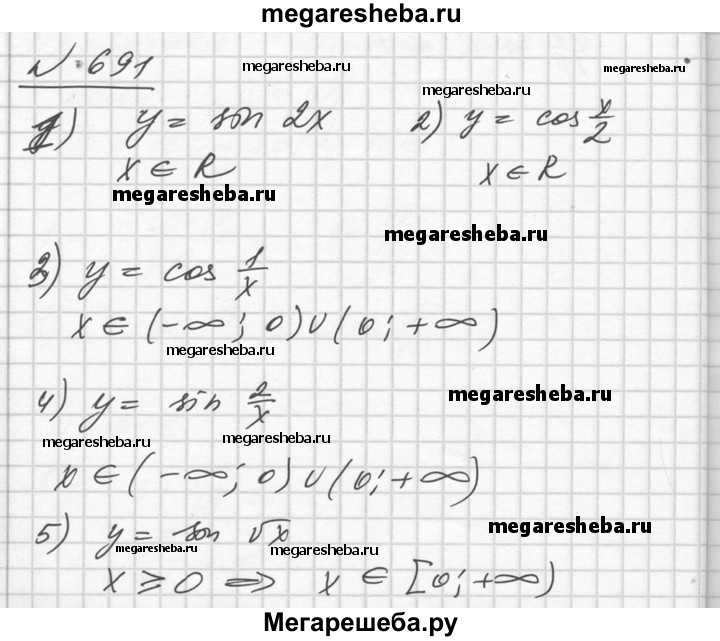 megaresheba.ru
№ 691 megaresheba.ru megaresheba.ru
megaresheba.ru
1) y = sin 2x 2) y = cos x/2
x ∈ R x ∈ R
megaresheba.ru
megaresheba.ru
3) y = cos 1/x
x ∈ (-∞; 0) ∪ (0; +∞)
megaresheba.ru
megaresheba.ru
4) y = sin 2/x
megaresheba.ru megaresheba.ru
x ∈ (-∞; 0) ∪ (0; +∞)
5) y = sin √x megaresheba.ru
megaresheba.ru megaresheba.ru
x ≥ 0 ⟹ x ∈ [0; +∞)
Мегарешеба.ру